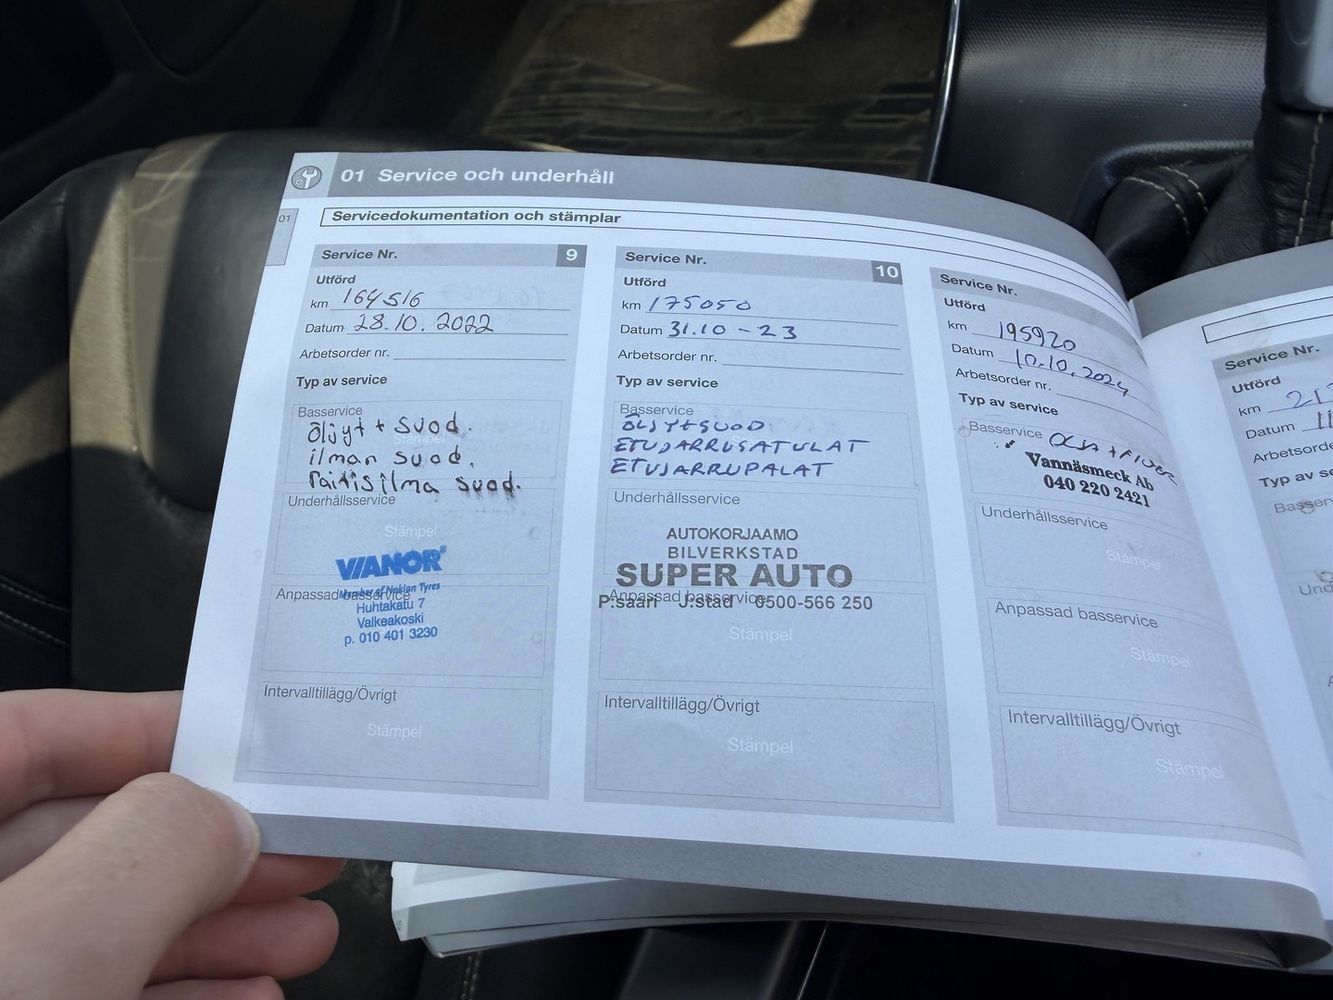 01 Service och underhåll
01
Servicedokumentation och stämplar
Service Nr. 9
Utförd
km 164516
Datum 28.10.2022
Arbetsorder nr.
Typ av service
Basservice
Öljyt + suod.
ilman suod.
raitisilma suod.
Stämpel
Underhållsservice
Stämpel
VIANOR
Member of Nokian Tyres
Anpassad basservice
Huhtakatu 7
Valkeakoski
p. 010 401 3230
Intervalltillägg/Övrigt
Stämpel
Service Nr. 10
Utförd
km 175050
Datum 31.10-23
Arbetsorder nr.
Typ av service
Basservice
ÖLJYT+SUOD
ETUJARRUSATULAT
ETUJARRUPALAT
Underhållsservice
AUTOKORJAAMO
BILVERKSTAD
SUPER AUTO
Anpassad basservice
P:saari J:stad 0500-566 250
Stämpel
Intervalltillägg/Övrigt
Stämpel
Service Nr.
Utförd
km 195920
Datum 10.10.2024
Arbetsorder nr.
Typ av service
Basservice
Vannäsmeck Ab
040 220 2421
Underhållsservice
Stämpel
Anpassad basservice
Stämpel
Intervalltillägg/Övrigt
Stämpel
Service Nr.
Utförd
km
Datum
Typ av